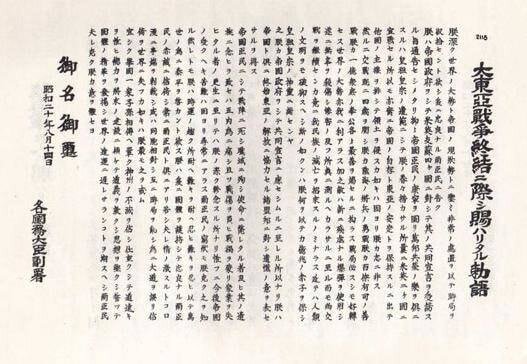 大東亞戰爭終結ニ際シ賜ハリタル勅語
朕深ク世界ノ大勢ト帝國ノ現狀トニ鑒ミ非常ノ措置ヲ以テ時局ヲ
收拾セムト欲シ茲ニ忠良ナル爾臣民ニ告ク
朕ハ帝國政府ヲシテ米英支蘇四國ニ對シ其ノ共同宣言ヲ受諾ス
ル旨通告セシメタリ抑帝國臣民ノ康寧ヲ圖リ萬邦共榮ノ樂ヲ偕ニ
スルハ皇祖皇宗ノ遺範ニシテ朕ノ拳々措カサル所曩ニ米英二國ニ
宣戰セル所以モ亦實ニ帝國ノ自存ト東亞ノ安定トヲ スルニ出テ
他國ノ主權ヲ排シ領土ヲ侵スカ如キハ固ヨリ朕カ志ニ
然ルニ交戰已ニ四歳ヲ閲シ朕カ陸海將兵ノ勇戰朕カ百僚有司ノ
朕カ一億衆庶ノ奉公各最善ヲ盡セルニ拘ラス戰局必スシモ好轉
セス世界ノ大勢亦我ニ利アラス加之敵ハ新ニ殘虐ナル爆彈ヲ使用シ
無辜ヲ殺傷シ慘害ノ及フ所眞ニ測ルヘカラサルニ至ル而モ尚交
戰ヲ繼續セムカ終ニ我カ民族ノ滅亡ヲ招來スルノミナラス延テ人類
ノ文明ヲモ破却スヘシ斯ノ如クムハ朕何ヲ以テカ億兆ノ赤子ヲ保シ
皇祖皇宗ノ神靈ニ謝セムヤ
朕カ帝國政府ヲシテ共同宣言ニ應セシムルニ至レル所以ナリ朕ハ
帝國ト共ニ終始東亞ノ解放ニ協力セル諸盟邦ニ對シ遺憾ノ意ヲ表セ
サルヲ得ス
帝國臣民ニシテ戰陣ニ死シ職域ニ殉シ非命ニ斃レタル者及其ノ遺
族ニ想ヲ致セハ五内爲ニ裂ク且戰傷ヲ負ヒ災禍ヲ蒙リ家業ヲ失
ヒタル者ノ厚生ニ至リテハ朕ノ深ク軫念スル所ナリ惟フニ今後帝國
ノ受クヘキ苦難ハ固ヨリ尋常ニアラス爾臣民ノ衷情モ朕善ク之ヲ知
ル然レトモ朕ハ時運ノ趨ク所堪ヘ難キヲ堪ヘ忍ヒ難キヲ忍ヒ以テ萬
世ノ爲ニ太平ヲ開カムト欲ス朕ハ茲ニ國體ヲ護持シ得テ忠良ナル爾臣
民ノ赤誠ニ信倚シ常ニ爾臣民ト共ニ在リ若シ夫レ情ノ激スル所
濫ニ事端ヲ滋クシ或ハ同胞排擠互ニ時局ヲ亂リ爲ニ大道ヲ誤リ信
義ヲ世界ニ失フカ如キハ朕最モ之ヲ戒ム
宜シク擧國一家子孫相傳ヘ確ク神州ノ不滅ヲ信シ任重クシテ道遠キ
ヲ念ヒ總力ヲ將來ノ建設ニ傾ケ道義ヲ篤クシ志操ヲ鞏クシ誓テ
國體ノ精華ヲ發揚シ世界ノ進運ニ後レサラムコトヲ期スヘシ爾臣民
其レ克ク朕カ意ヲ體セヨ
御名御璽
昭和二十年八月十四日
各國務大臣副署